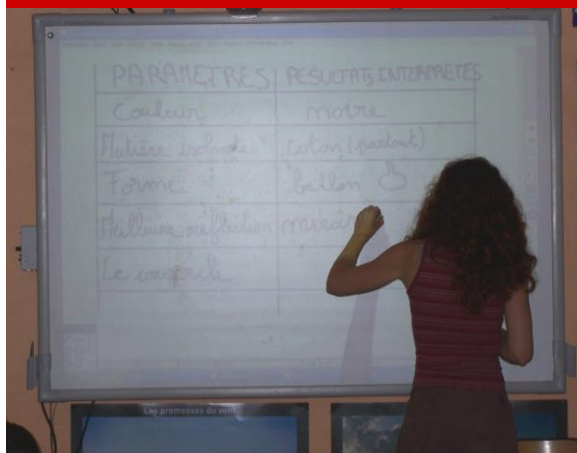 PARAMETRES RESULTATS INTERPRETES
Couleur noire
Matière isolante coton (partout)
Forme ballon
Meilleure réflection miroir
Le couvercle
Les promesses du vent